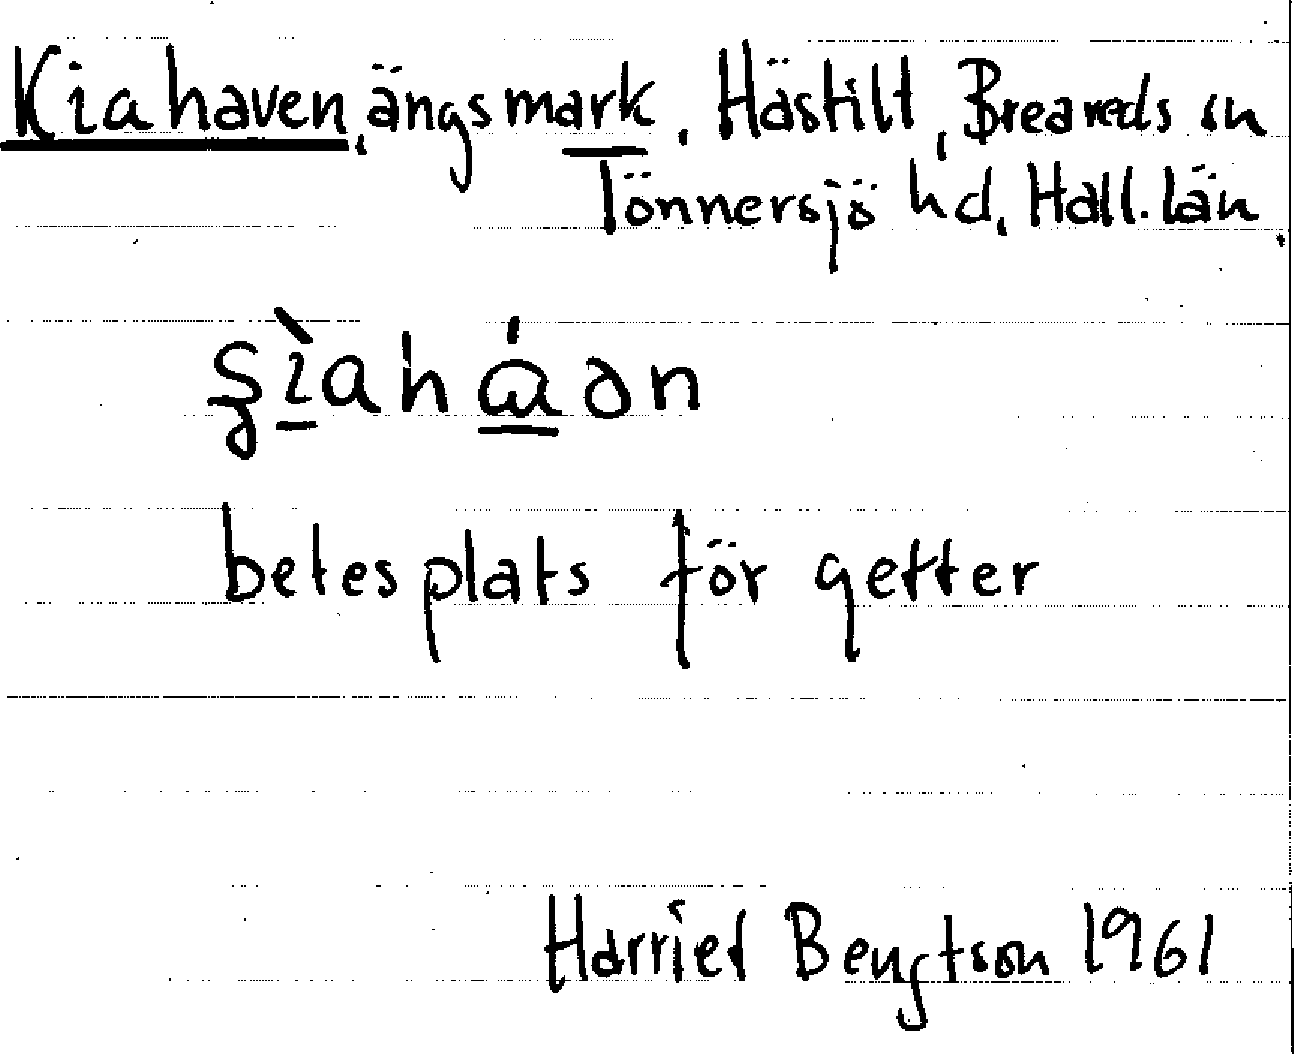 Kiahaven, ängsmark, Hästilt, Breareds sn
Tönnersjö hd, Hall. län.
betesplats för getter
Harriet Bengtson 1961